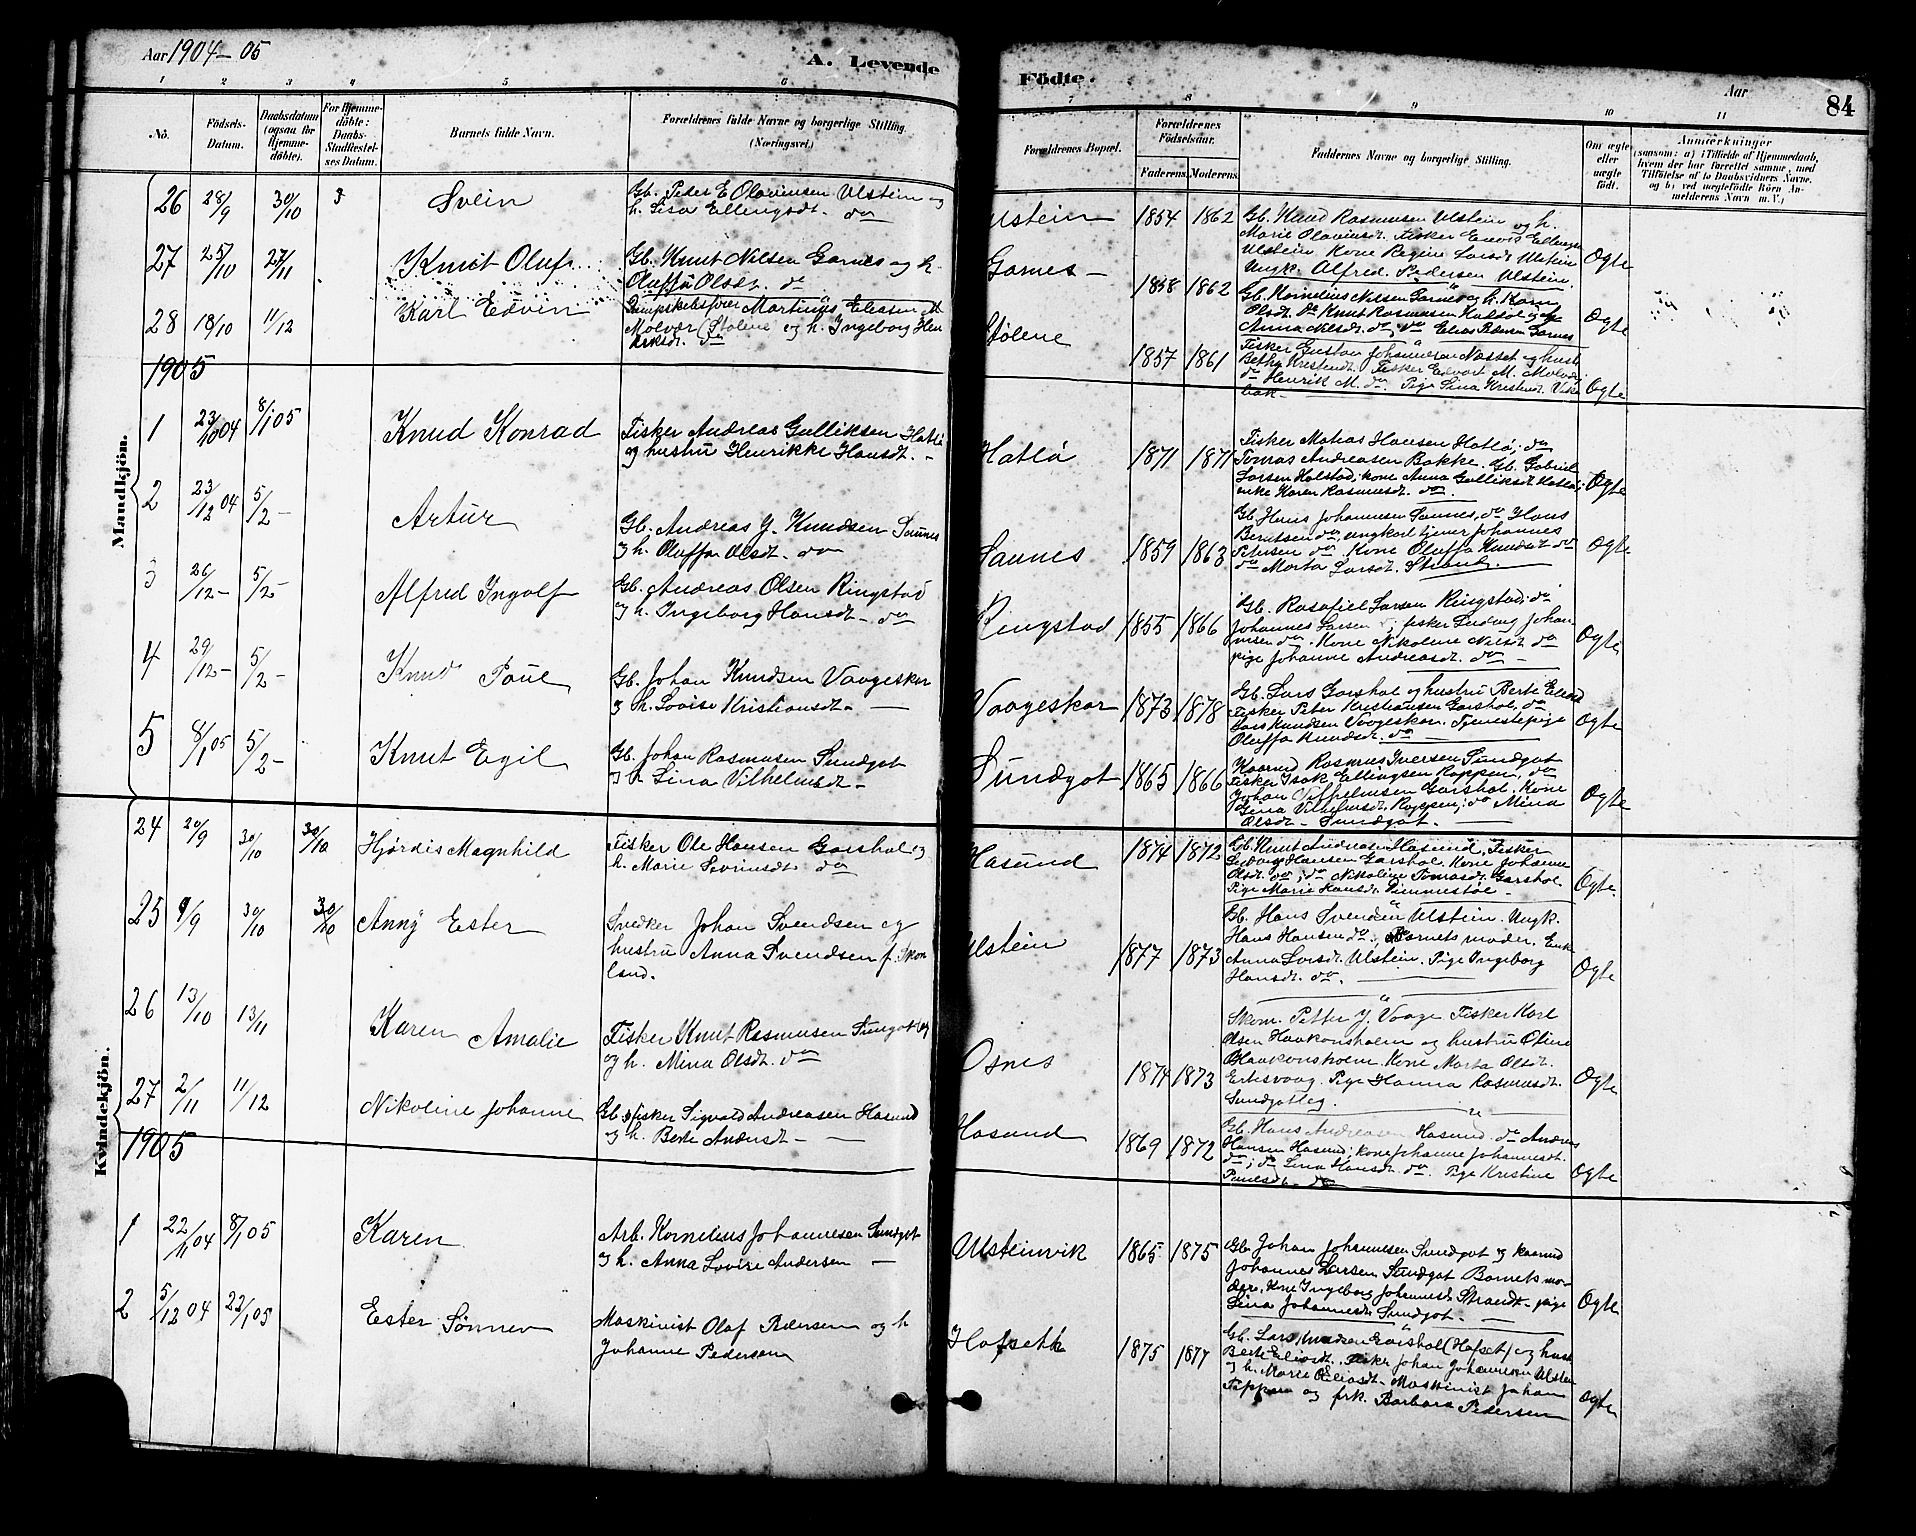 Aar 1904-05
A. Levende
Födte.
Aar
84
1 2 3 4 5 6 7 8 9 10 11
No.
Födsels-Datum.
Daabsdatum (ogsaa for Hjemmedöbte).
For Hjemmedöbte: Daabs-Stadfæstelses Datum.
Barnets fulde Navn.
Forældrenes fulde Navne og borgerlige Stilling. (Næringsvei.)
Forældrenes Bopæl.
Forældrenes Födselsaar.
Faderens. Moderens.
Faddernes Navne og borgerlige Stilling.
Om ægte eller uægte födt.
Anmærkninger
(saasom: a) i Tilfælde af Hjemmedaab, hvem der har forrettet samme, med Tilföielse af to Daabsvidners Navne, og b) ved uægtefödte Börn Anmelderens Navn m.V.)
Mandkjön.
26 28/9 30/10 Svein
Gb. Peder E Olavinsen Ulstein og
h. Lisa Ellingsdt. do
Ulstein 1854 1862
Gb. Knud Rasmussen Ulstein og h.
Marie Olavinsdt. Fisker
Ulstein. Kone Regine Larsdt Ulstein
Ungk. Alfred Pedersen Ulstein.
Ogte
27 25/10 27/11 Knut Oluf
Gb. Knut Nilsen Garnes og h.
Oluffa Olsdt. do
Garnes - 1858 1862
Gb. Kornelius Nilsen Garnes og h. Karen
Olsdt. do Knut Rasmussen
Anna Nilsdt. do, do Elias Pedersen Garnes
Ogte
28 18/10 11/12 Karl Edvin
Martinus Eliasen
Molvær (Stølene) og h. Ingeborg Hen
riksdt. do
Stølene 1857 1861
Fisker Gustav Johannesen Næsset og hust.
Bethy Kristendt. Fisker Edvart M. Molvær
do Henrik M. do. Pige Lina Kristendt. Vike
bak.
Ogte
1905
1 23/10 04 8/1 05 Knud Konrad
Fisker Andreas Gulliksen Hatlø
og hustru Henrikke Hansdt. -
Hatlø 1871 1871
Fisker Matias Hansen Hatlø; do
Tomas Andreasen Bakke. Gb. Gabriel
Larsen Halstad; kone Anna Gulliksdt Hatlø;
enke Karen Rasmusdt. do
Ogte
2 23/12 04 5/2 - Artur
Gb. Andreas J. Knudsen Saunes
og h. Oluffa Olsdt. do
Saunes 1859 1863
Gb. Hans Johannesen Saunes, do Hans
Berntsen do, ungkarl tjener Johannes
Petersen do. Kone Oluffa Knudsdt do
do Marta Larsdt. Strand.
Ogte
3 26/12 - 5/2 - Alfred Ingolf
Gb. Andreas Olsen Ringstad
og h. Ingeborg Hansdt - do
Ringstad 1855 1866
Gb. Rasafiel Larsen Ringstad; do
Johannes Larsen; fisker Ludvig Johan
nesen do. Kone Nikoline Nilsdt do
pige Johanne Andreasdt. do -
Ogte
4 29/12 - 5/2 - Knud Paul
Gb. Johan Knudsen Vaageskar
og h. Lovise Kristiansdt. -
Vaageskar 1873 1878
Gb. Lars Garshol og hustru Berte Eliasd
Fisker Peter Kristiansen Garshol, do
Lars Knudsen Vaageskar. Tjenestepige
Oluffa Knudsdt. do
Ogte
5 8/1 05 5/2 - Knut Egil
Gb. Johan Rasmusen Sundgot
og h Lina Vilhelmsdt. -
Sundgot 1865 1866
Kaarmd Rasmus Iversen Sundgot
Fisker Isak Ellingsen Roppen, do
Johan Vilhelmsen Garshol, Kone
Gina Vilhelmsdt. Roppen; do Mina
Olsdt - Sundgot. -
Ogte
Kvindekjön.
24 20/9 30/10 30/10 Hjørdis Magnhild
Fisker Ole Hansen Garshol og
h. Marie Severinsdt do
Hasund 1874 1872
Gb. Knut Andreasen Hasund, Fisker
Ludvig Hansen Garshol. Kone Johanne
Olsdt. do; do Nikoline Tomasdt. Garshol
Pige Marie Hansdt.
Ogte
25 9/9 30/10 30/10 Anny Ester
Snedker Johan Svendsen og
hustru Anna Svendsen f. Skon
land.
Ulstein 1877 1873
Gb. Hans Svendsen Ulstein. Ungk.
Hans Hansen do, Barnets moder. Enke
Anna Larsdt. Ulstein. Pige Ingeborg
Hansdt. do. -
Ogte
26 13/10 13/11 Karen Amalie
Fisker Knut Rasmussen Sungot og
og h. Mina Olsdt. do
Osnes 1874 1873
Skom. Petter J. Vaage Fisker Karl
Olsen Haakonsholm og hustru Oline
Haakonsholm. Kone Marta Olsdt.
Eriksvaag. Pige Hanna Rasmusdt.
Sundgotleg.
Ogte
27 2/11 11/12 Nikoline Johanne
Gb. & fisker Sigvald Andreasen Hasund
og h. Berte Andersdt -
Hasund 1869 1872
Gb. Hans Andreasen Hasund do Andreas
Hansen Hasund; kone Johanne Johannesdt.
do; do Lina Hansdt. do. Pige Kristine
Paulsdt. do
Ogte
1905
1 22/11 04 8/1 05 Karen
Arb. Kornelius Johannesen Sundgot
og h. Anna Lovise Andersen -
Ulsteinvik 1865 1875
Gb. Johan Johannesen Sundgot og kaarmd
Johannes Larsen Sundgot Barnets mo-
der, kone Ingeborg Johannesdt Strandt. pige
Lina Johannesdt Sundgot. -
Ogte
2 5/12 04 22/1 05 Ester Sønnev
Maskinist Olaf Pedersen og h
Johanne Pedersen
Hofseth 1875 1877
Gb. Lars Knudsen Garshol (Hofset) og hust
Berte Eliasdt. Fisker Johan Johannesen Ulstein
og h. Marie Eliasdt. Maskinist Johan
og frk. Barbara Pedersen
Ogte